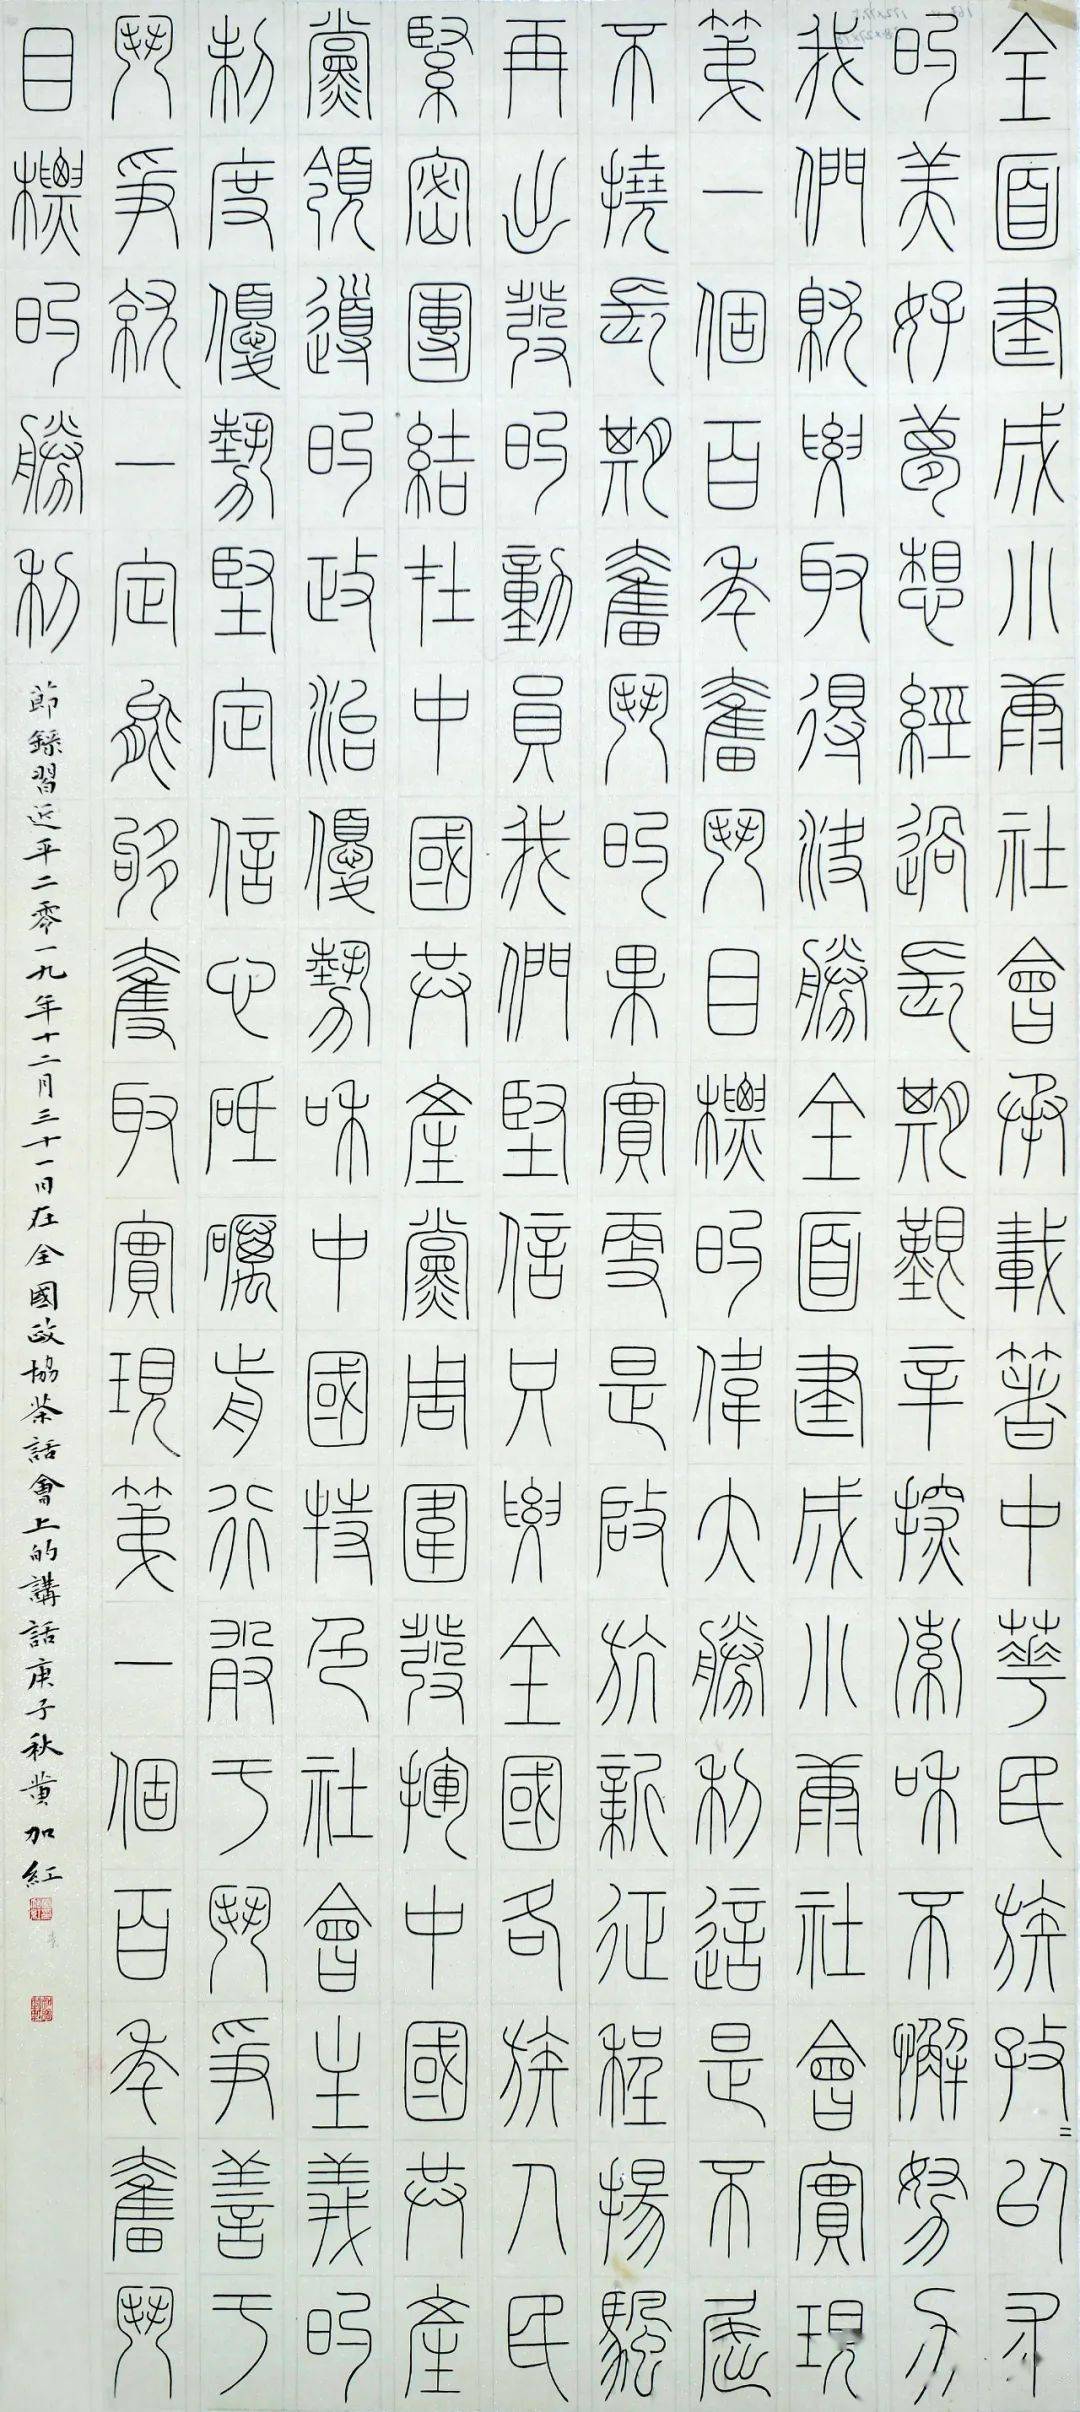 全面建成小康社會承載著中華民族孜=以求
的美好夢想經過長期艱辛探索和不懈努力
我們就要取得決勝全面建成小康社會實現
第一個百年奮鬥目標的偉大勝利這是不屈
不撓長期奮鬥的果實更是啟航新征程揚颿
再出發的動員我們堅信只要全國各族人民
緊密團結在中國共產黨周圍發揮中國共產
黨領導的政治優勢和中國特色社會主義的
制度優勢堅定信心砥礪前行敢于鬥爭善于
鬥爭就一定能够奪取實現第一個百年奮鬥
目標的勝利
節錄習近平二零一九年十二月三十一日在全國政協茶話會上的講話庚子秋黃加紅